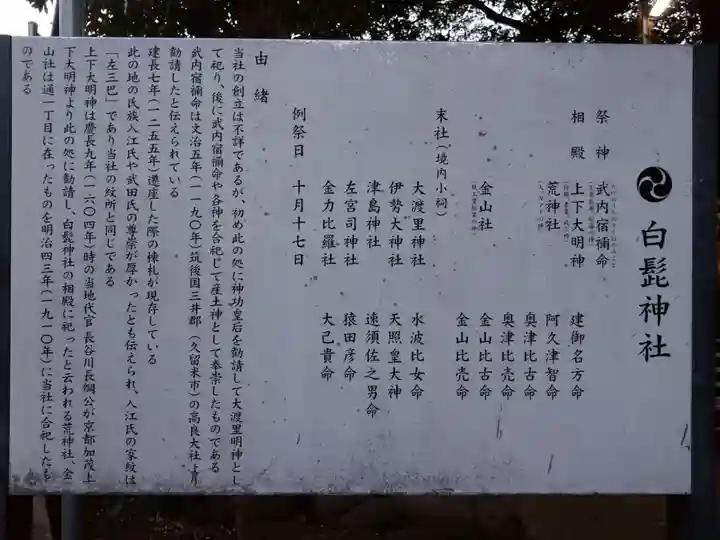 白髭神社
祭神 武内宿禰命
相殿 上下大明神 建御名方命
荒神社 阿久津智命
奥津比古命
奥津比売命
金山社 金山比古命
金山比売命
末社(境内小祠)
大渡里神社 水波比女命
伊勢大神社 天照皇大神
津島神社 速須佐之男命
左宮司神社 猿田彦命
金力比羅社 大己貴命
例祭日 十月十七日
由緒
当社の創立は不詳であるが、初め此の処に神功皇后を勧請して大渡里明神とし
て祀り、後に武内宿禰命や各神を合祀して産土神として奉崇したものである
武内宿禰命は文治五年(一一九〇年)筑後国三井郡(久留米市)の高良大社より
勧請したと伝えられている
建長七年(一二五五年)遷座した際の棟札が現存している
此の地の氏族入江氏や武田氏の尊崇が厚かったとも伝えられ、入江氏の家紋は
「左三巴」であり当社の紋所と同じである
上下大明神は慶長九年(一六〇四年)時の当地代官長谷川長綱公が京都加茂上
下大明神より此の処に勧請し、白髭神社の相殿に祀ったと云われる荒神社、金
山社は通一丁目に在ったものを明治四三年(一九一〇年)に当社に合祀したも
のである